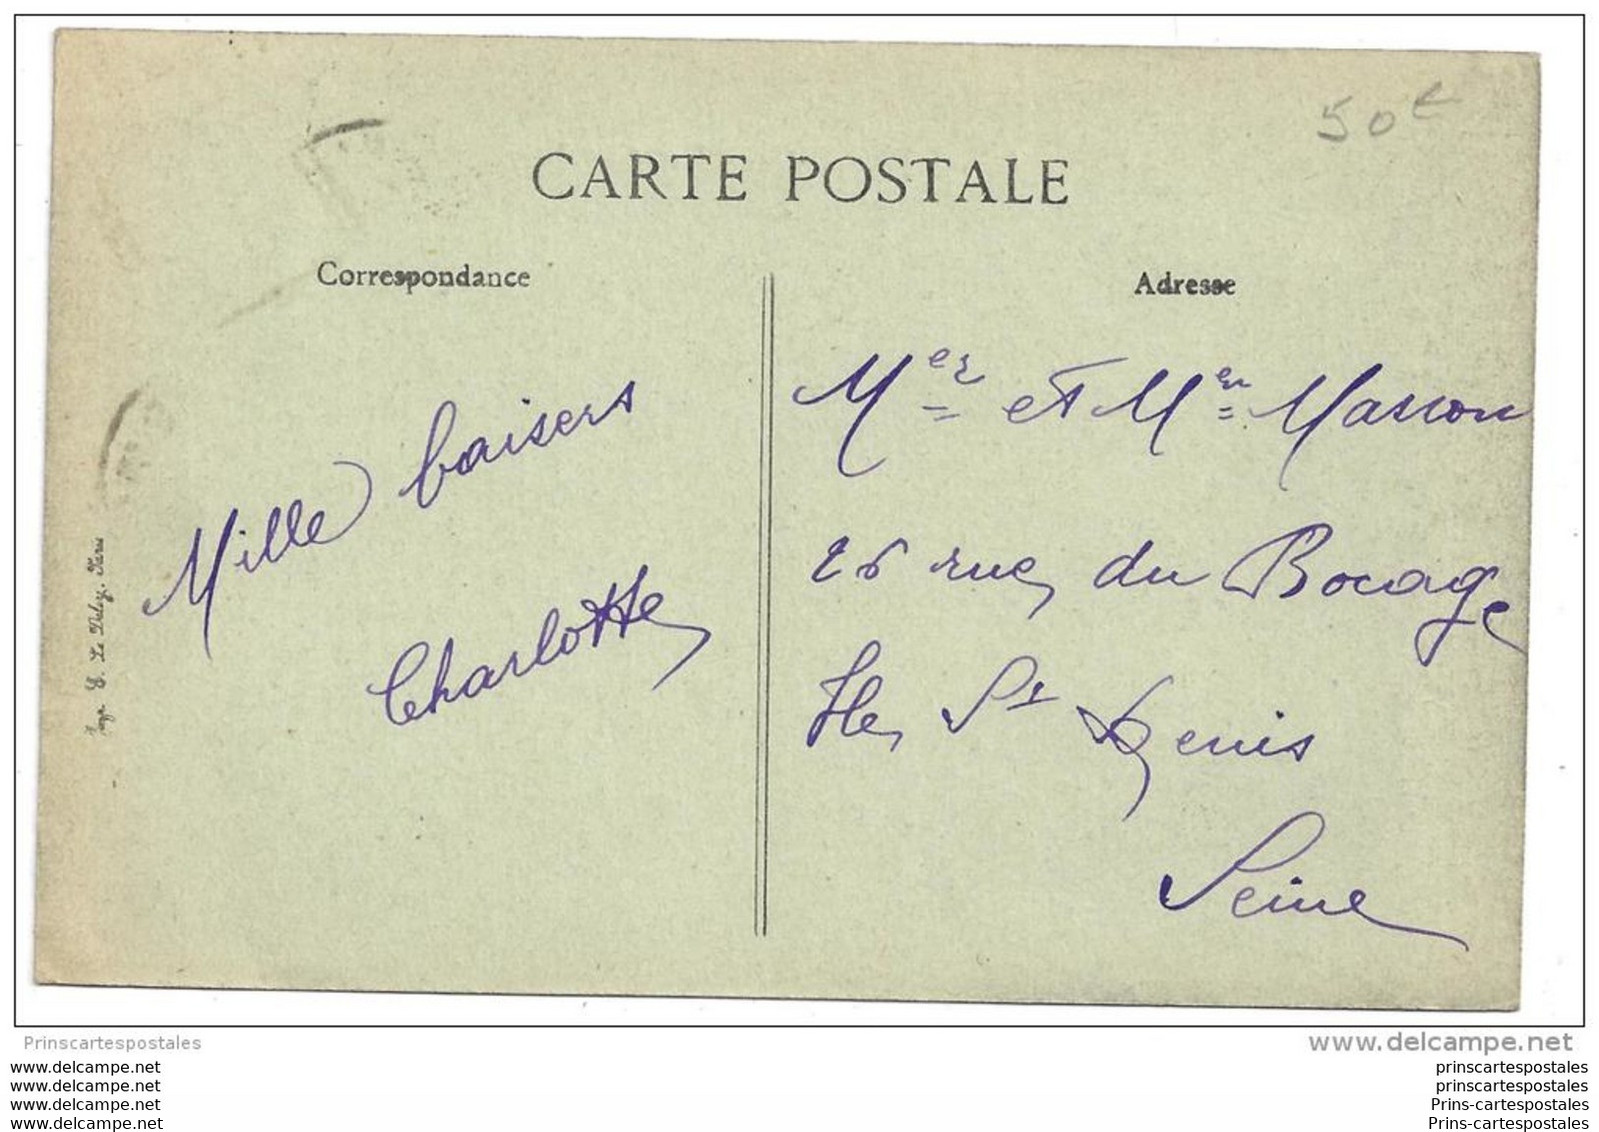 50€
CARTE POSTALE
Correspondance
Adresse
Mille baisers
Charlotte
Mer et Men Masson
26 rue du Bocage
Ile St Denis
Seine
Imp. E. Le Deley, Paris
Prinscartespostales
www.delcampe.net
www.delcampe.net
www.delcampe.net
www.delcampe.net
www.delcampe.net
prinscartespostales
prinscartespostales
Prins-cartespostales
Prins-cartespostales